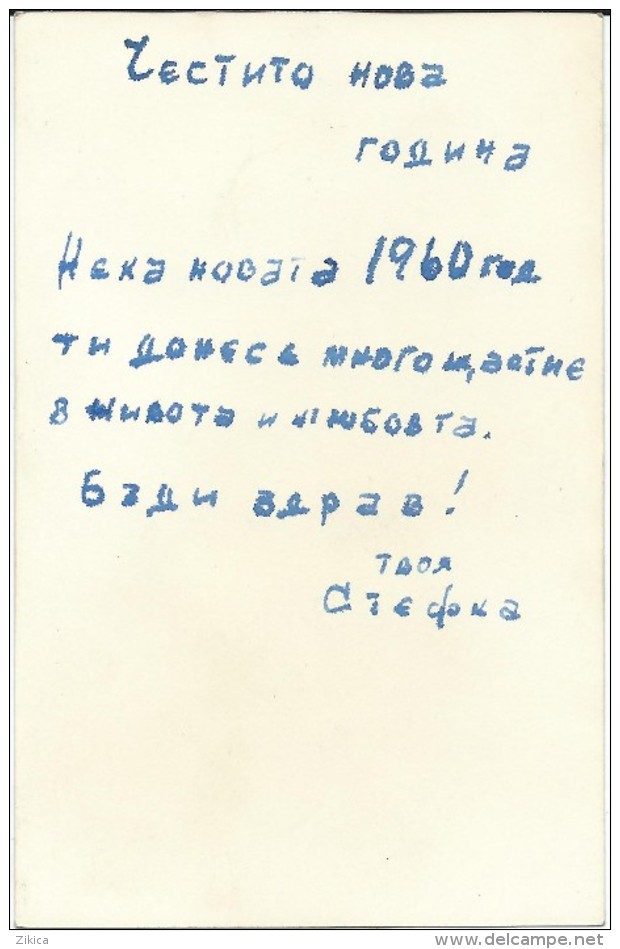 Честито нова
година
Нека новата 1960 год
ти донесе много щастие
в живота и любовта.
Бъди здрав!
твоя
Стефка
Zikica
www.delcampe.net